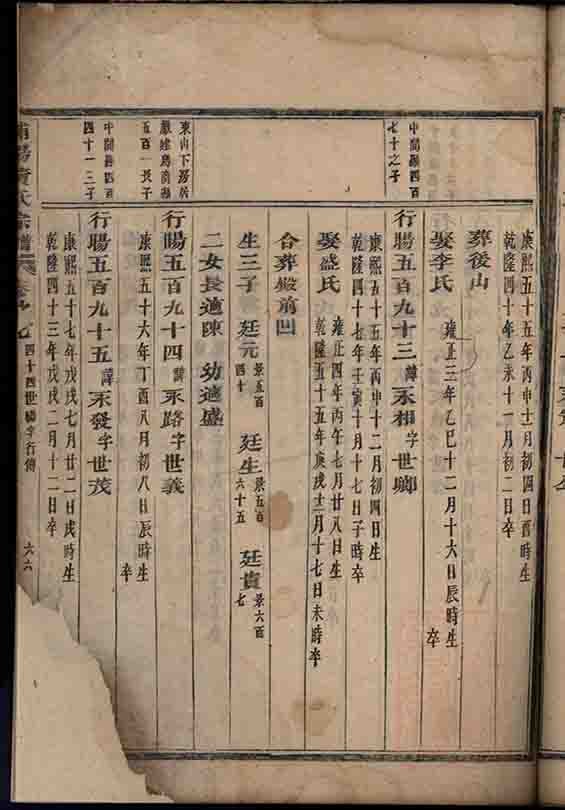 康熙五十五年丙申十二月初四日酉時生
乾隆四十年乙未十一月初二日卒
葬後山
娶李氏 雍正三年乙巳十二月十六日辰時生
卒
中間縣四百
七十之子
行暘五百九十三諱永相字世卿
康熙五十五年丙申十二月初四日生
乾隆四十七年壬寅十月十七日子時卒
娶盛氏 雍正四年丙午七月廿八日生
乾隆五十五年庚戌十二月十七日未時卒
合葬殿前凹
生三子 廷元 景五百四十 廷生 景五百六十五 廷貴 景六百七
二女長適陳 幼適盛
東山下
五百一長子
行暘五百九十四諱永路字世義
康熙五十六年丁酉八月初八日辰時生
卒
中間縣四百
四十一三子
行暘五百九十五諱永發字世茂
康熙五十七年戊戌七月廿二日戌時生
乾隆四十三年戊戌二月十二日卒
氏宗譜
四十四世暘字行傳
六六